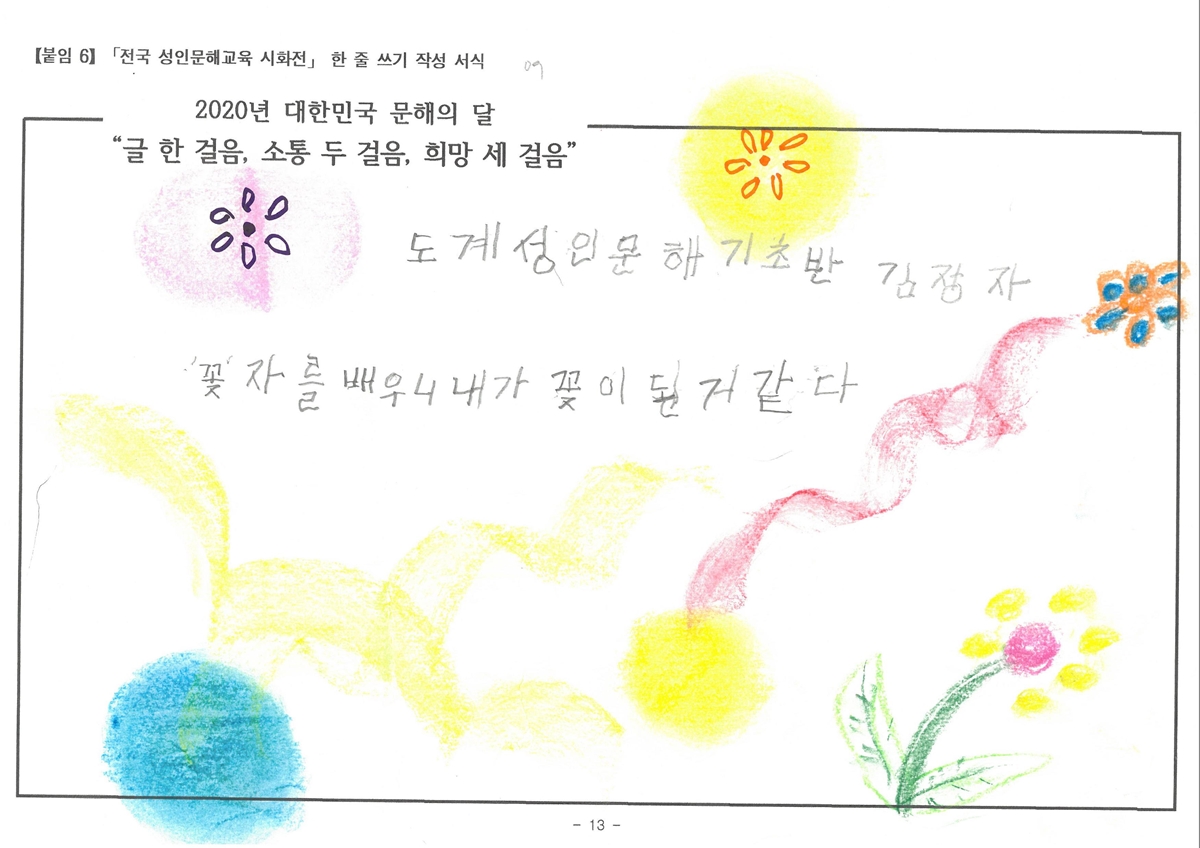 【붙임 6】「전국 성인문해교육 시화전」 한 줄 쓰기 작성 서식
09
2020년 대한민국 문해의 달
“글 한 걸음, 소통 두 걸음, 희망 세 걸음”
도계성인문해기초반 김점자
'꽃'자를 배우니 내가 꽃이 된거같다
- 13 -